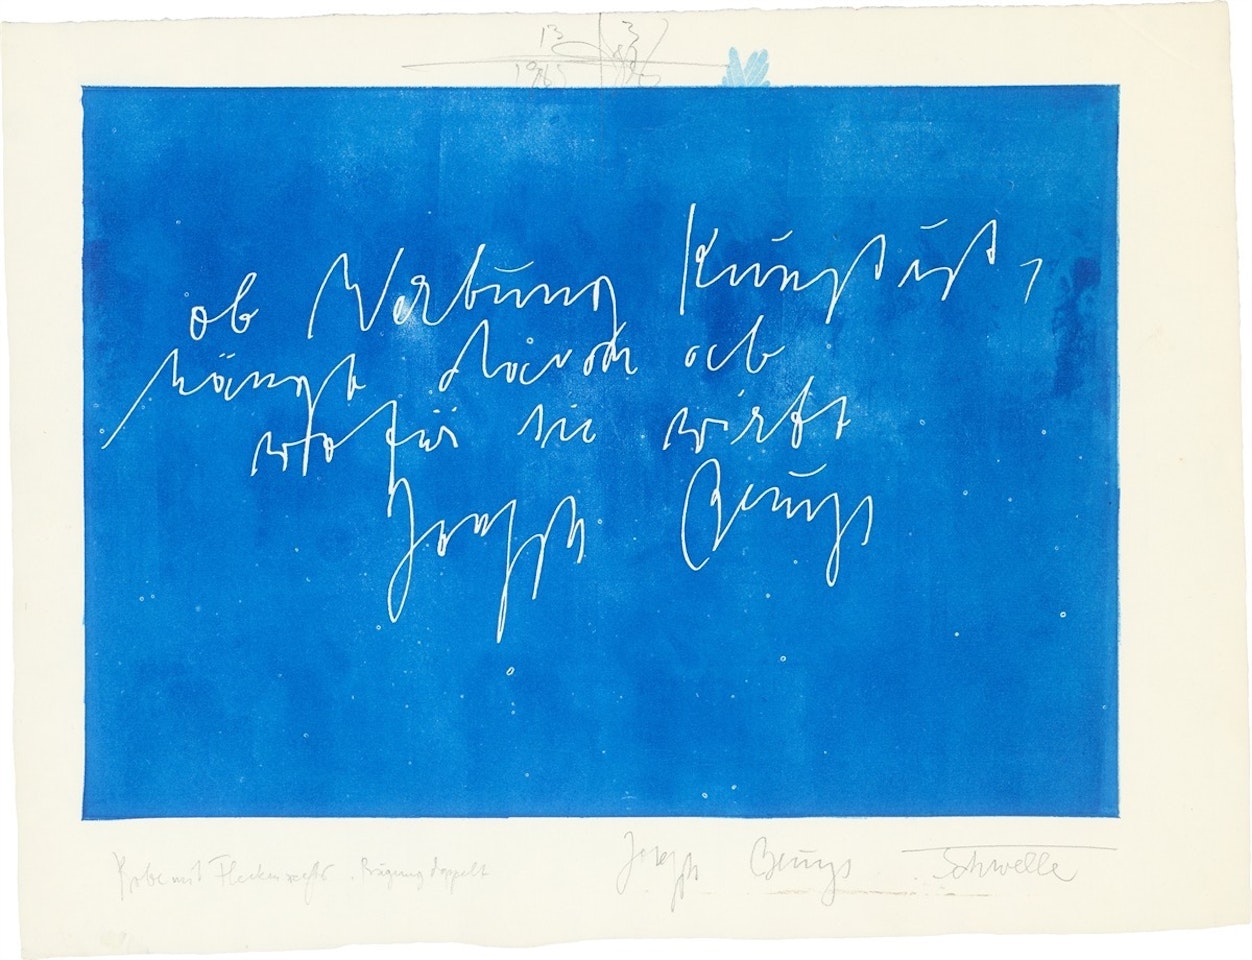 ob Werbung Kunst ist,
hängt davon ab
wofür sie wirbt
Joseph Beuys
Probe mit Flecken rechts . Prägung doppelt
Joseph Beuys Schwelle